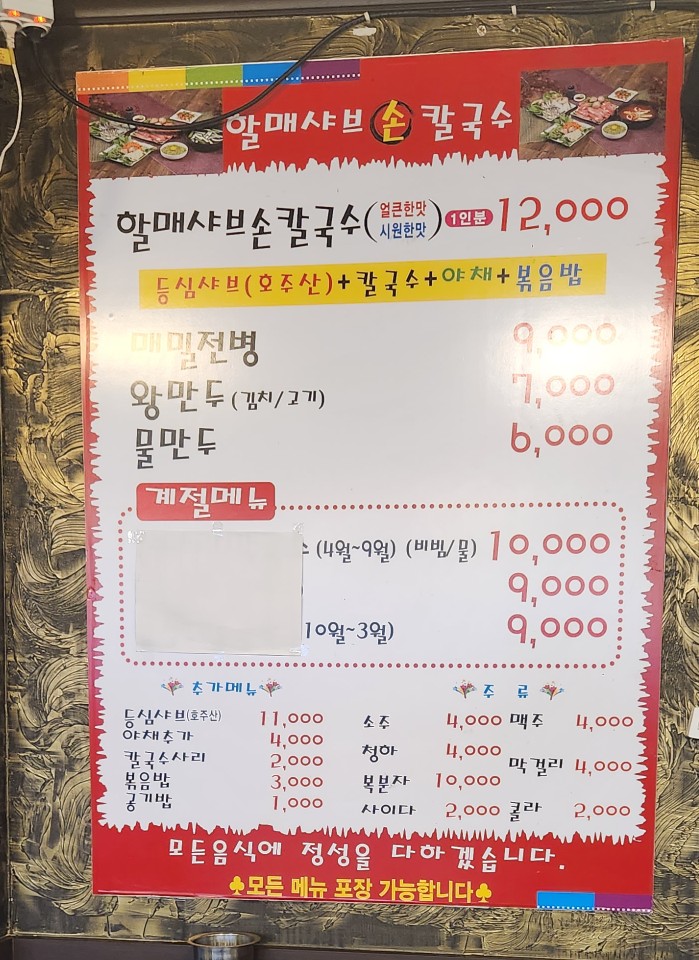 할매샤브 손 칼국수
할매샤브손칼국수(얼큰한맛 시원한맛) 1인분 12,000
등심샤브(호주산)+칼국수+야채+볶음밥
메밀전병 9,000
왕만두(김치/고기) 7,000
물만두 6,000
계절메뉴
(4월~9월) (비빔/물) 10,000
9,000
10월~3월) 9,000
추가메뉴
등심샤브(호주산) 11,000
야채추가 4,000
칼국수사리 2,000
볶음밥 3,000
공기밥 1,000
주 류
소주 4,000 맥주 4,000
청하 4,000
막걸리 4,000
복분자 10,000
사이다 2,000 콜라 2,000
모든음식에 정성을 다하겠습니다.
♣모든 메뉴 포장 가능합니다♣